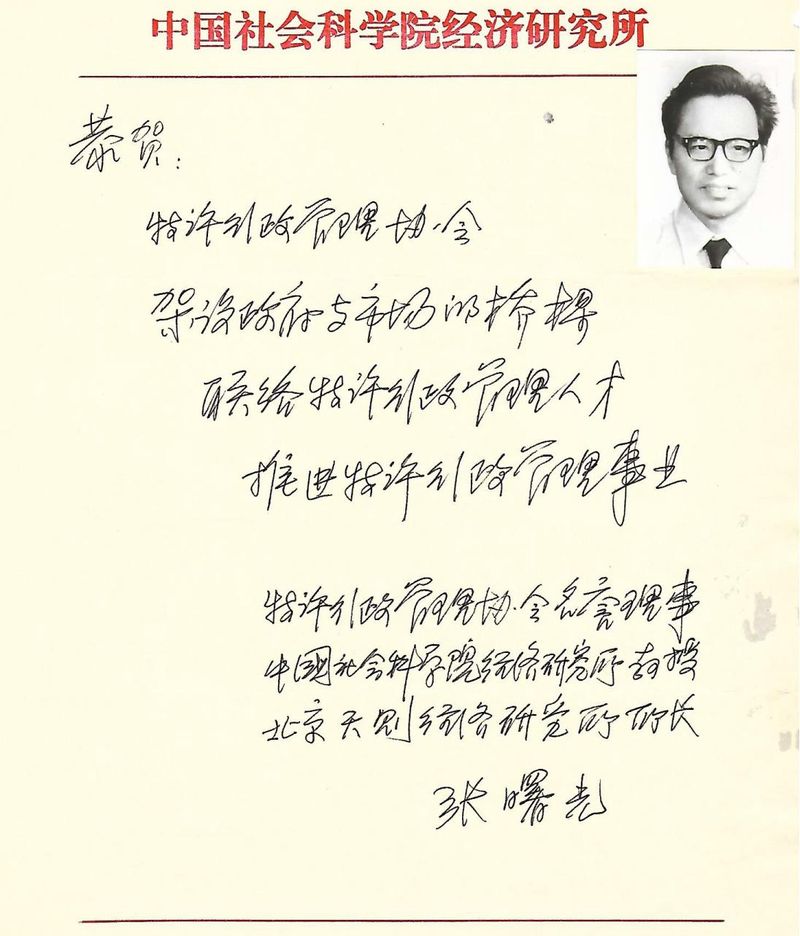 中国社会科学院经济研究所
恭贺：
特许财政管理协会
架设政府与市场的桥梁
联络特许财政管理人才
推进特许财政管理事业
特许财政管理协会名誉理事
中国社会科学院经济研究所教授
北京天则经济研究所所长
张曙光